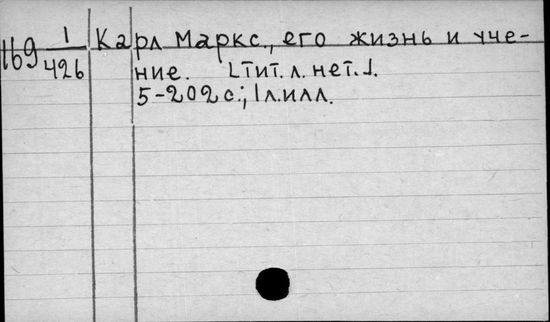 169 1/426 Карл Маркс., его жизнь и уче-
ние. [Тит. л. нет.].
5-202 с.; 1 л. илл.